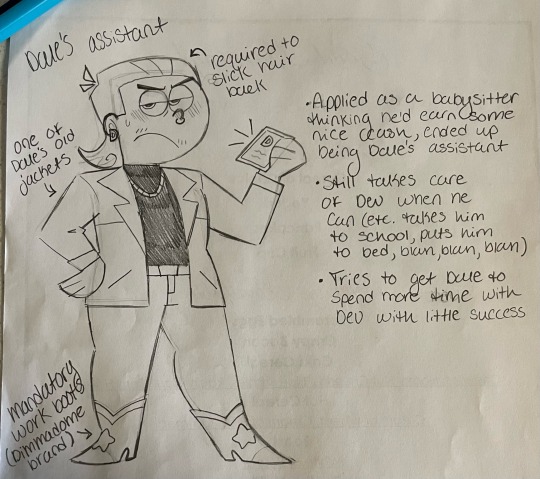 Dale's assistant
required to
slick hair
back
one of
Dale's old
jackets
mandatory
work boots
(Dimmadome
brand)
• Applied as a babysitter
thinking he'd earn some
nice cash, ended up
being Dale's assistant
• Still takes care
of Dev when he
can (etc. takes him
to school, puts him
to bed, blah, blah, blah)
• Tries to get Dale to
spend more time with
Dev with little success